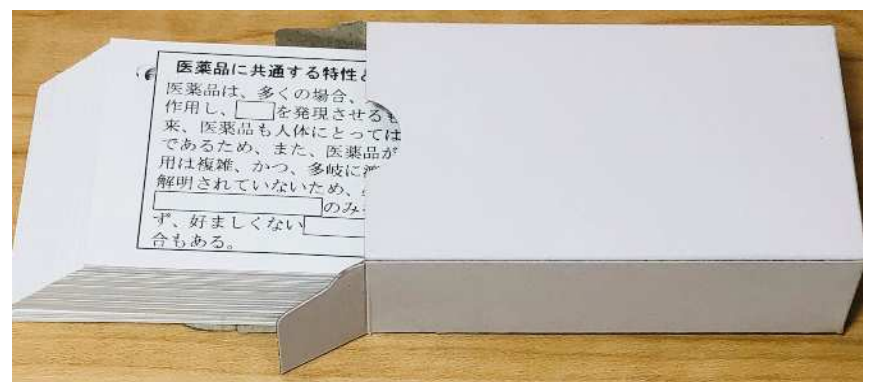 医薬品に共通する特性と
医薬品は、多くの場合、
作用し、を発現させるも
来、医薬品も人体にとっては
であるため、また、医薬品が
用は複雑、かつ、多岐に
解明されていないため、
のみ
ず、好ましくない
合もある。